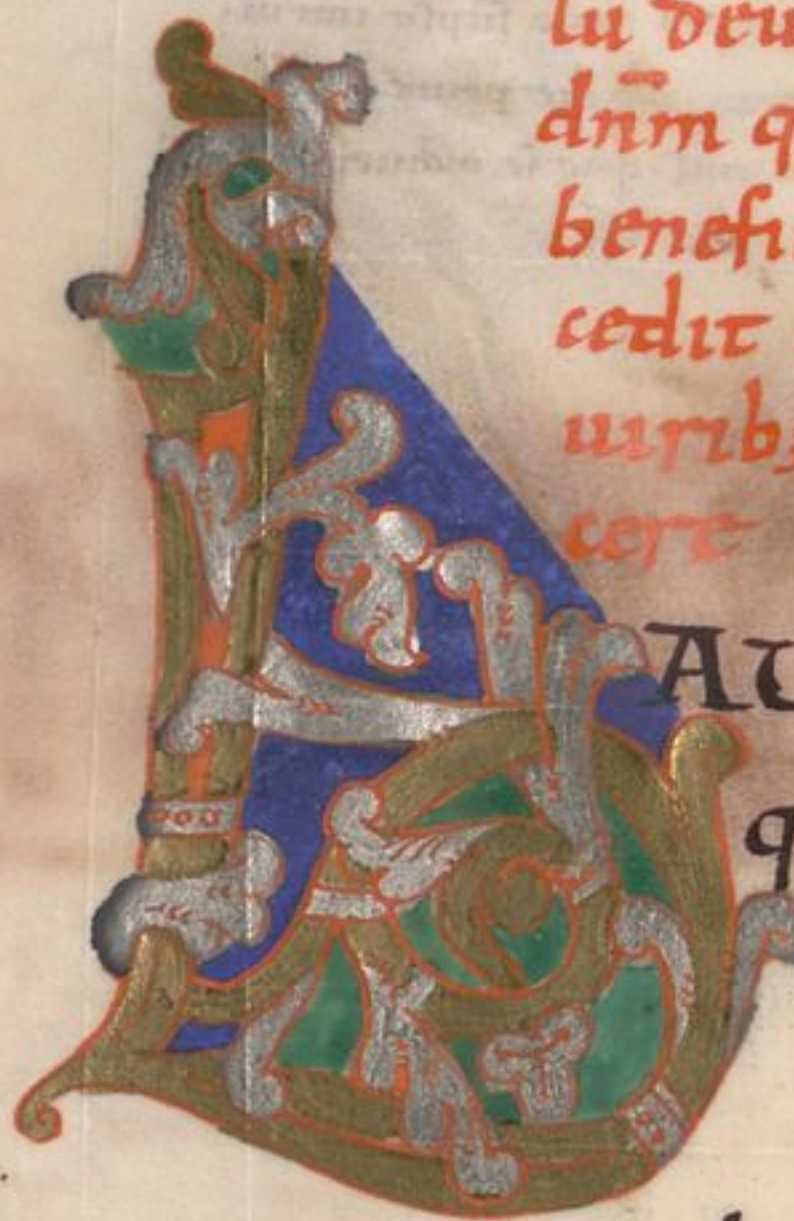 lu deu
dnm̄ q
benefi
cedit
uirib;
cere
AU
q